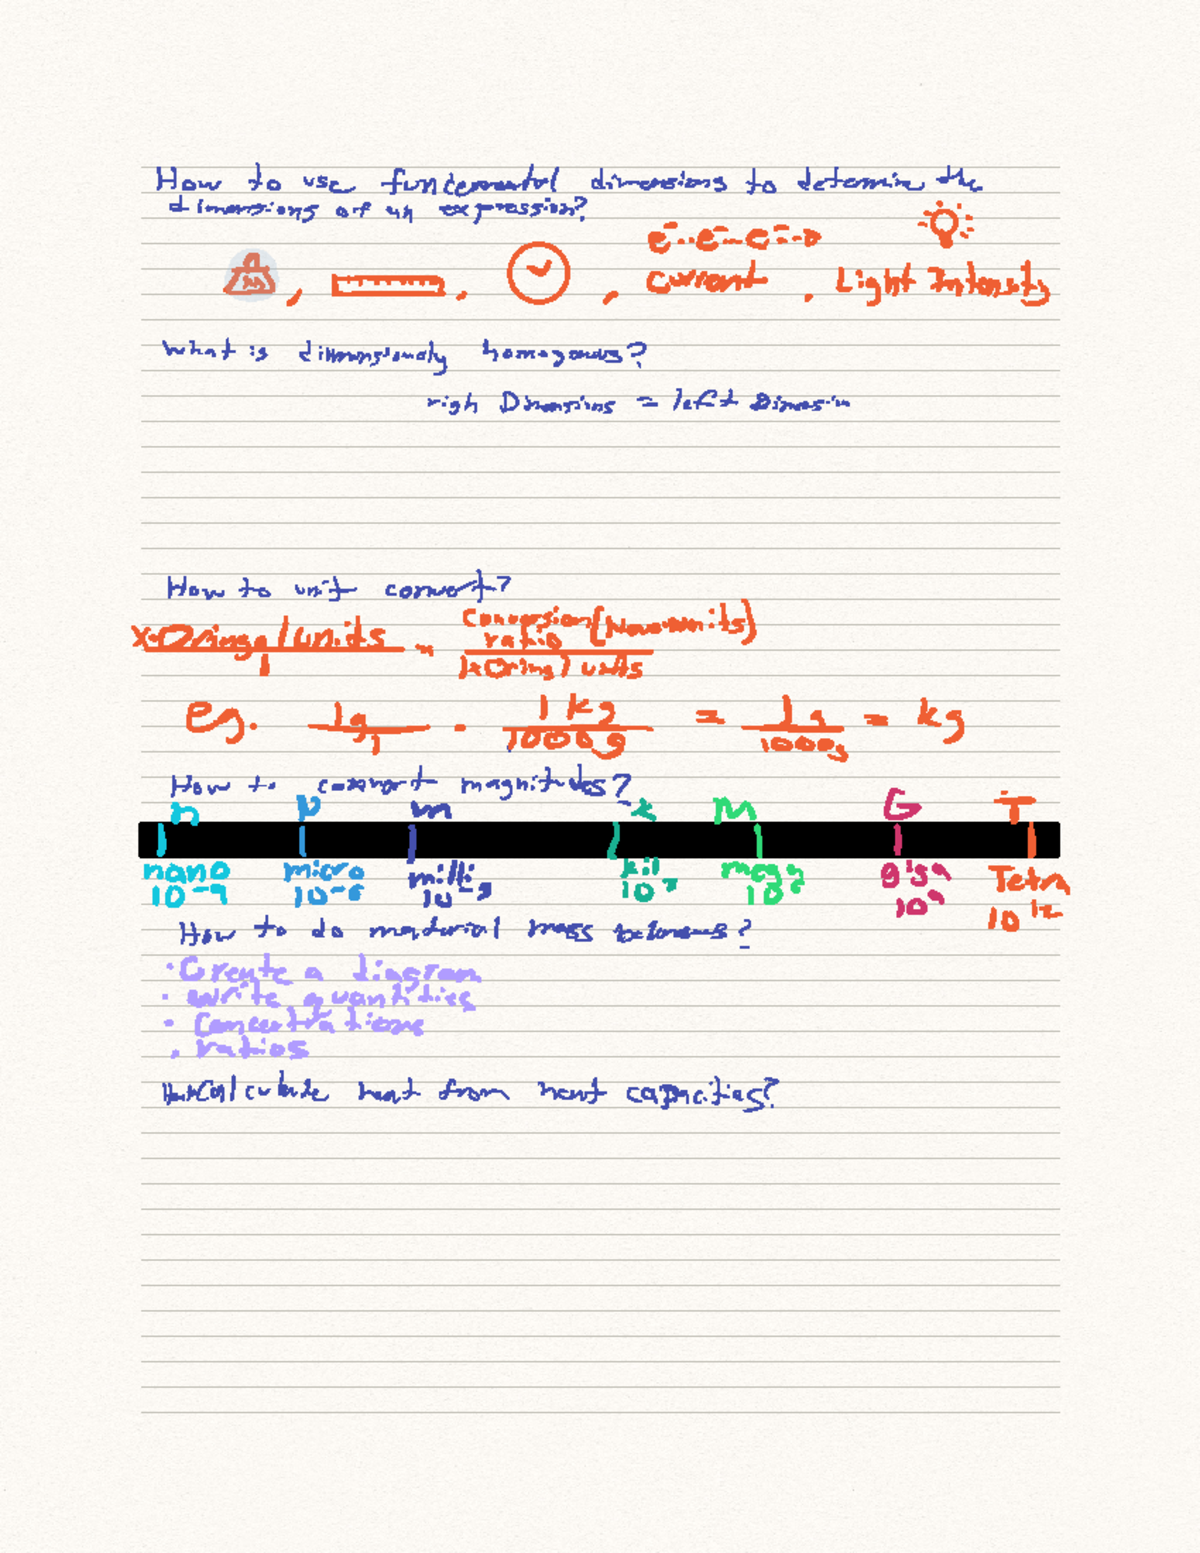 How to use fundemental dimensions to determine the
dimensions of an expression?
e-..e-..e-..
, , , current , Light Intensity
What is dimensionaly homogenous?
righ Dimensions = left Dimension
How to unit convert?
Conversion (New units)
X·Oringal units ratio
1 1×(Oring) units
eg. 1g · 1 kg = 1g = kg
1 1000g 1000g
How to convert magnitudes?
n μ m k M G T
nano micro milli kil mega giga Tetra
10^-9 10^-6 10^-3 10^3 10^6 10^9 10^12
How to do material mass balances?
· Create a diagram
· write quantities
· Concentrations
· ratios
Calculate heat from heat capacities?